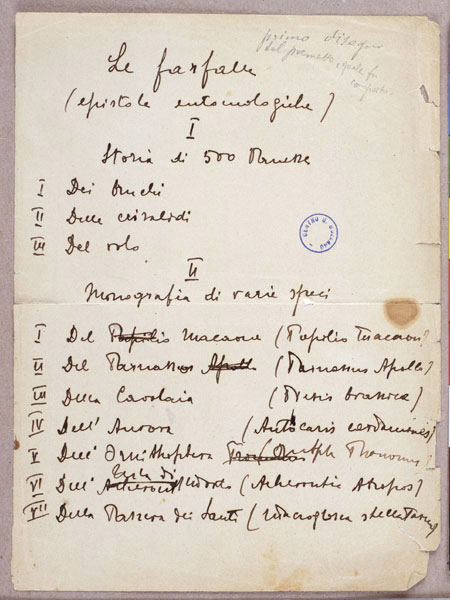 primo disegno
del poemetto, quale fu
Le farfalle
(epistole entomologiche)
I
Storia di 500 Vanesse
I Dei bruchi
II Delle crisalidi
III Del volo
II
Monografia di varie speci
I Del Papilio Macaone (Papilio Macaon)
II Del Parnassus Apollo (Parnassus Apollo)
III Della Cavolaia (Pieris brassicae)
IV Dell'Aurora (Antocaris cardamenes)
V Dell'Ornithoptera
VI Dell' Acherontia (Acherontia Atropos)
VII Della Passera dei Santi (Macroglossa stellatarum)